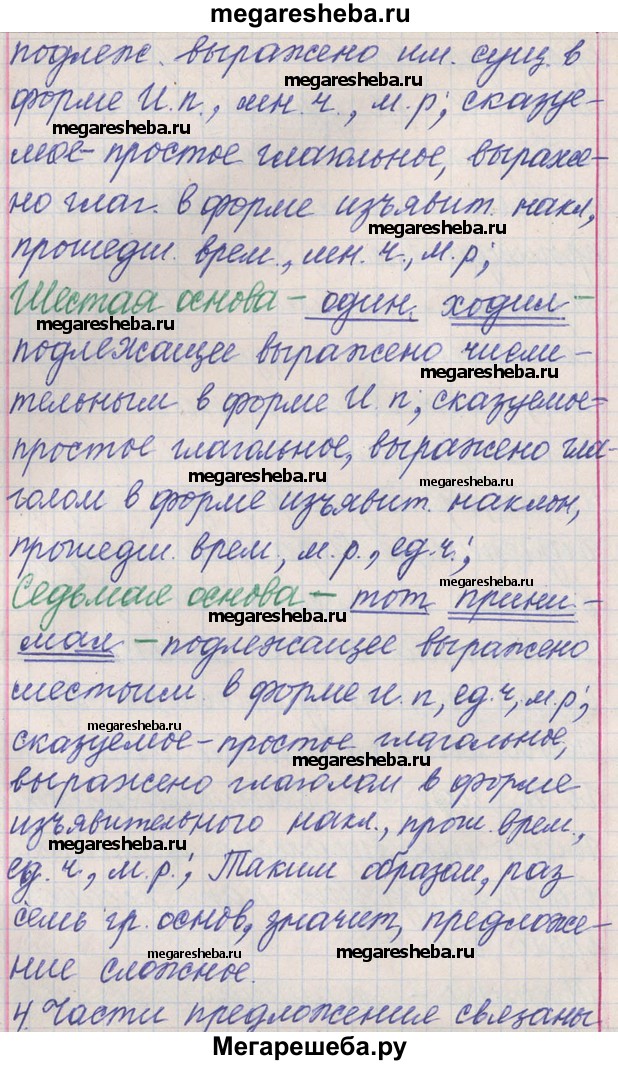 megaresheba.ru
подлеж. выражено им. сущ. в
megaresheba.ru
форме И.п., мн.ч., м.р; сказуе-
megaresheba.ru
megaresheba.ru
мое - простое глагольное, выраже-
но глаг. в форме изъявит. накл,
megaresheba.ru
прошедш. врем., мн.ч., м.р;
Шестая основа - один ходил -
megaresheba.ru
megaresheba.ru
подлежащее выражено числи-
megaresheba.ru
тельным в форме И.п; сказуемое-
простое глагольное, выражено гла-
megaresheba.ru
megaresheba.ru
голом в форме изъявит. наклон,
прошедш. врем., м.р., ед.ч.;
megaresheba.ru
Седьмая основа - тот прини-
megaresheba.ru
мал - подлежащее выражено
местоим. в форме И.п, ед.ч, м.р;
megaresheba.ru
сказуемое - простое глагольное,
megaresheba.ru
выражено глаголом в форме
изъявительного накл., прош. врем.,
megaresheba.ru
ед.ч., м.р.; Таким образом, раз
семь гр. основ, значит, предложе-
megaresheba.ru
megaresheba.ru
ние сложное.
4. Части предложения связаны
megaresheba.ru
Мегарешеба.ру